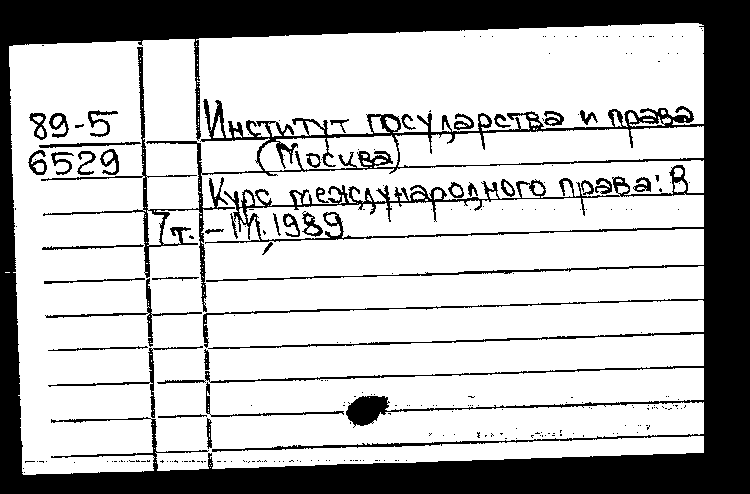 89-5 Институт государства и права
6529 (Москва)
Курс международного права: В
7 т. – М., 1989